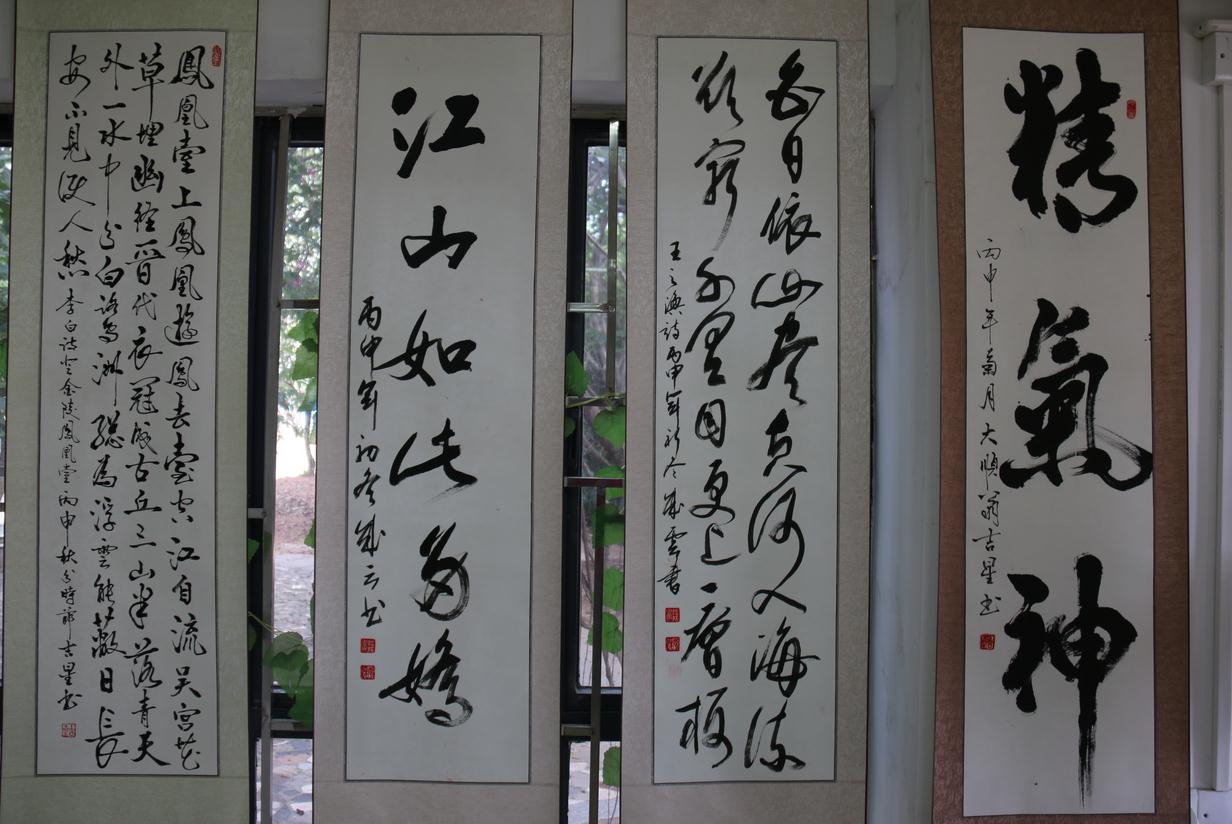 精氣神
丙申年菊月大順翁吉星书
白日依山尽黄河入海流
欲窮千里目更上一層楼
王之渙詩丙申年初冬成雲書
江山如此多嬌
丙申年初冬成云书
鳳凰臺上鳳凰遊鳳去臺空江自流吴宫花
草埋幽径晋代衣冠成古丘三山半落青天
外一水中分白鹭洲總為浮雲能蔽日長
安不見使人愁李白诗登金陵鳳凰臺丙申秋分時節吉星书